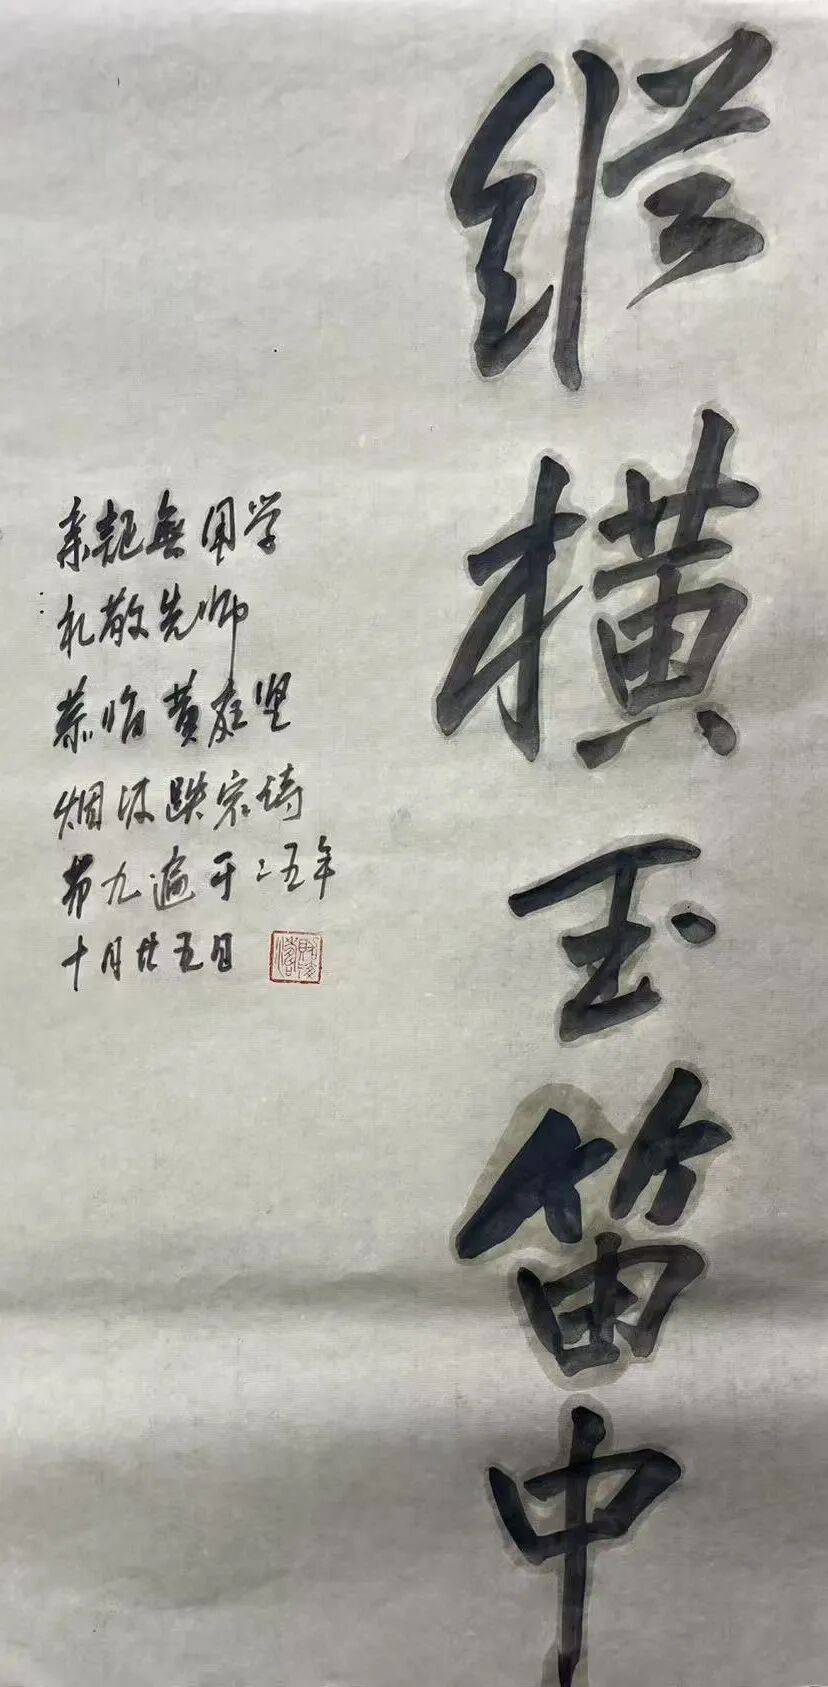 纵横玉笛中
亲起無用学
礼敬先师
恭临黄庭坚
烟波跌宕诗
第九遍于二五年
十月廿五日